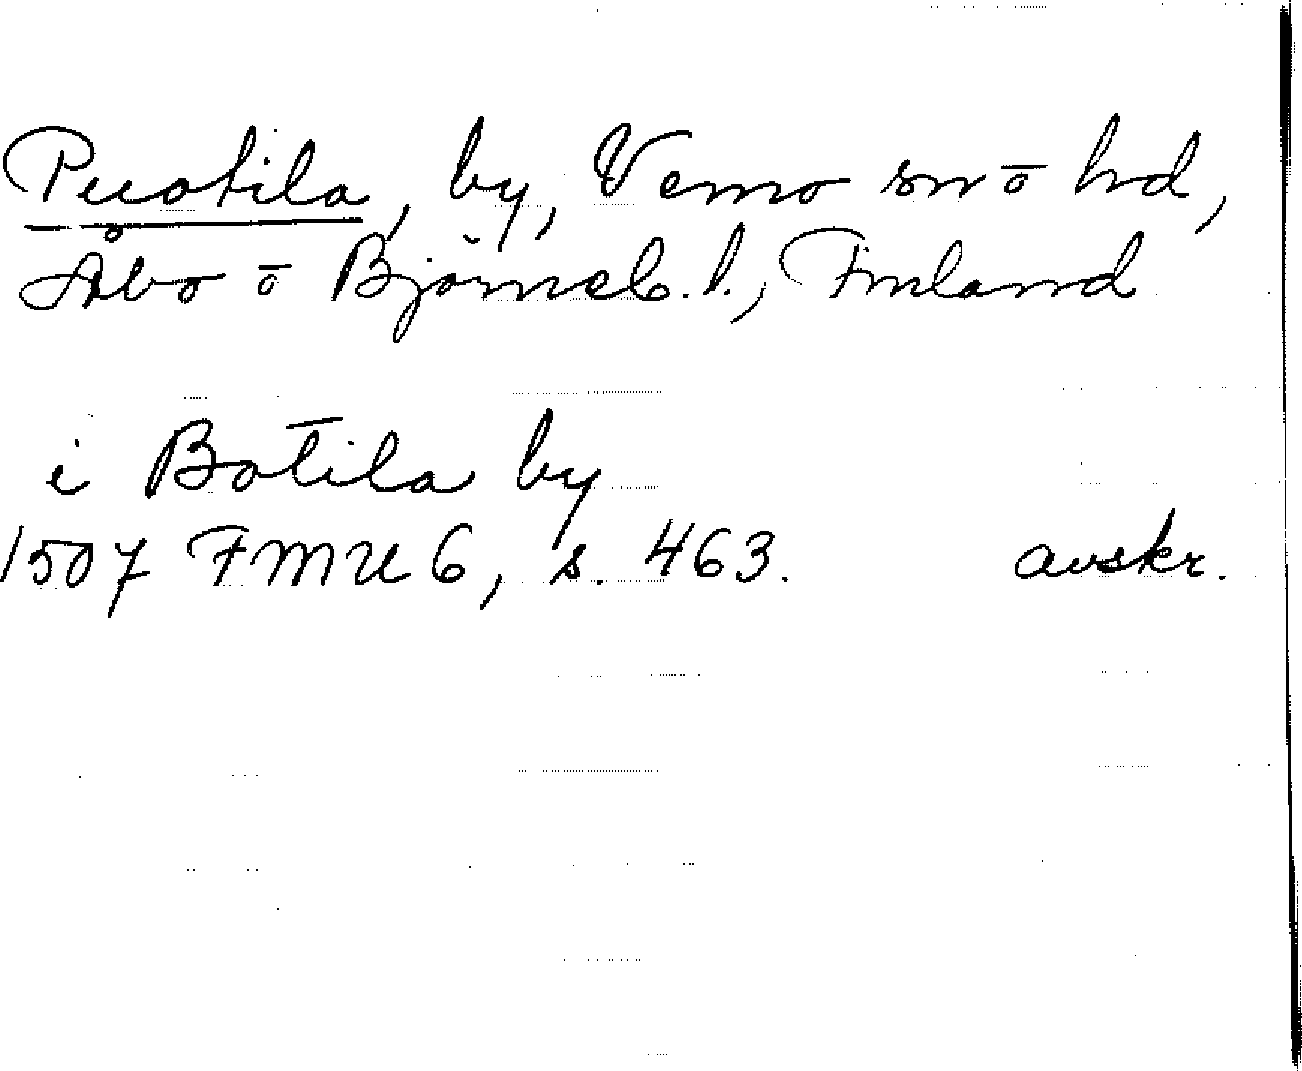 Puotila, by, Vemo sn ō hd,
Åbo ō Björneb. l., Finland
i Botila by
1507 FMU 6, s. 463. avskr.